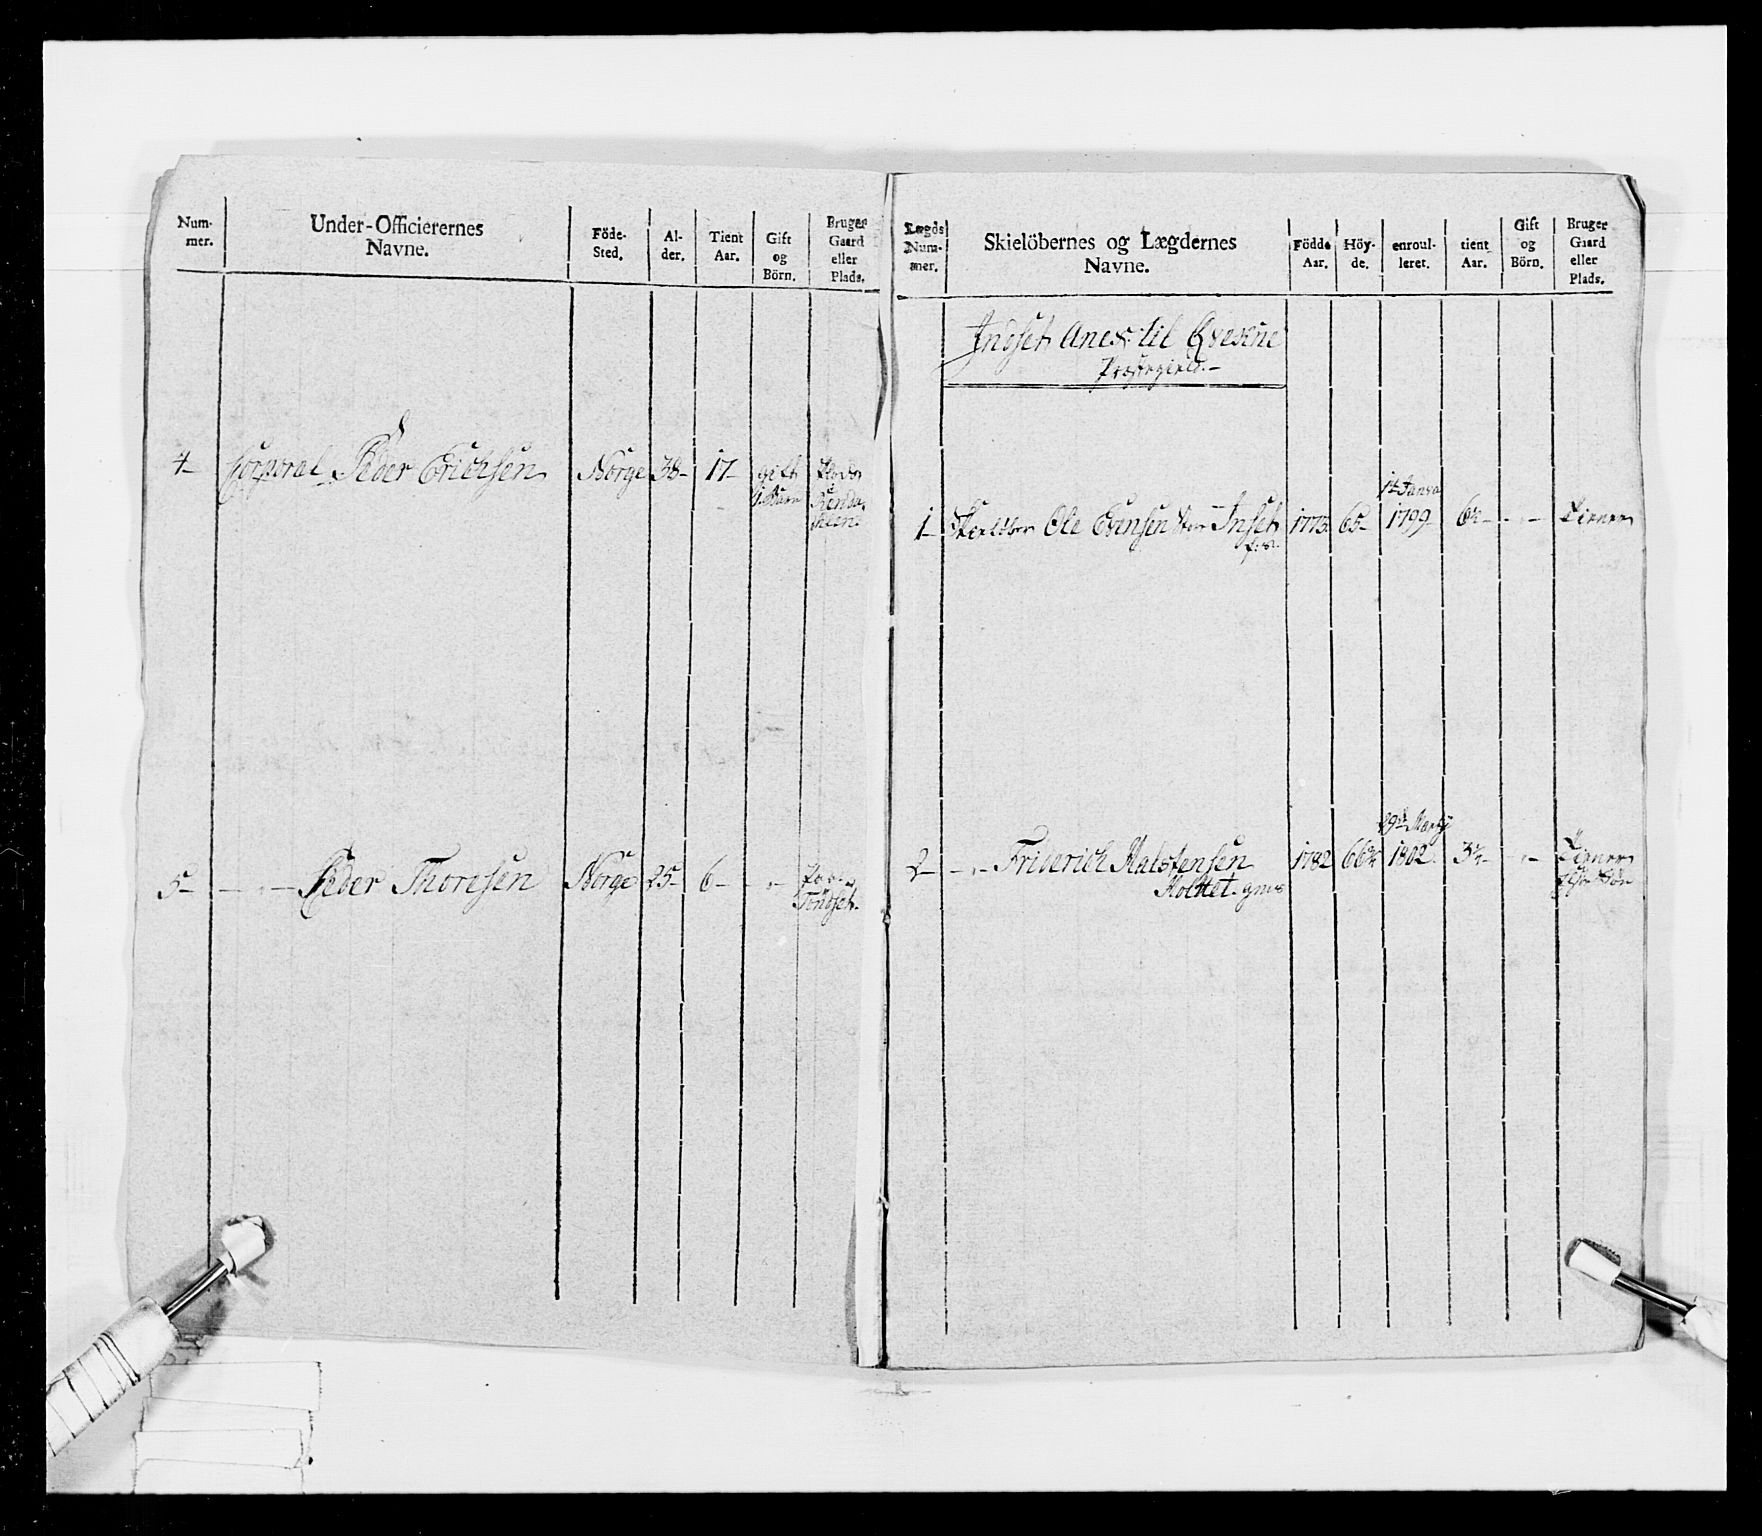 Num-
mer.
Under-Officierernes
Navne.
Föde-
Sted.
Al-
der.
Tient
Aar.
Gift
og
Börn.
Bruger
Gaard
eller
Plads.
4- Corporal Peder Erichsen Norge 38- 17- gift
1 Barn
5- - „ - Peder Thoresen Norge 25- 6- - „ -
Tönset.
Lægds
Num-
mer.
Skielöbernes og Lægdernes
Navne.
Födde
Aar.
Höy-
de.
enroul-
leret.
tient
Aar.
Gift
og
Börn.
Bruger
Gaard
eller
Plads.
Indset Anex til Qvekne
Præstegield.-
1- Skielöber Ole Evensen Inset 1773 65- 1799 - „ - Tiener
2- - „ - Friderich Halstensen 1782 1802 - „ - Tiener